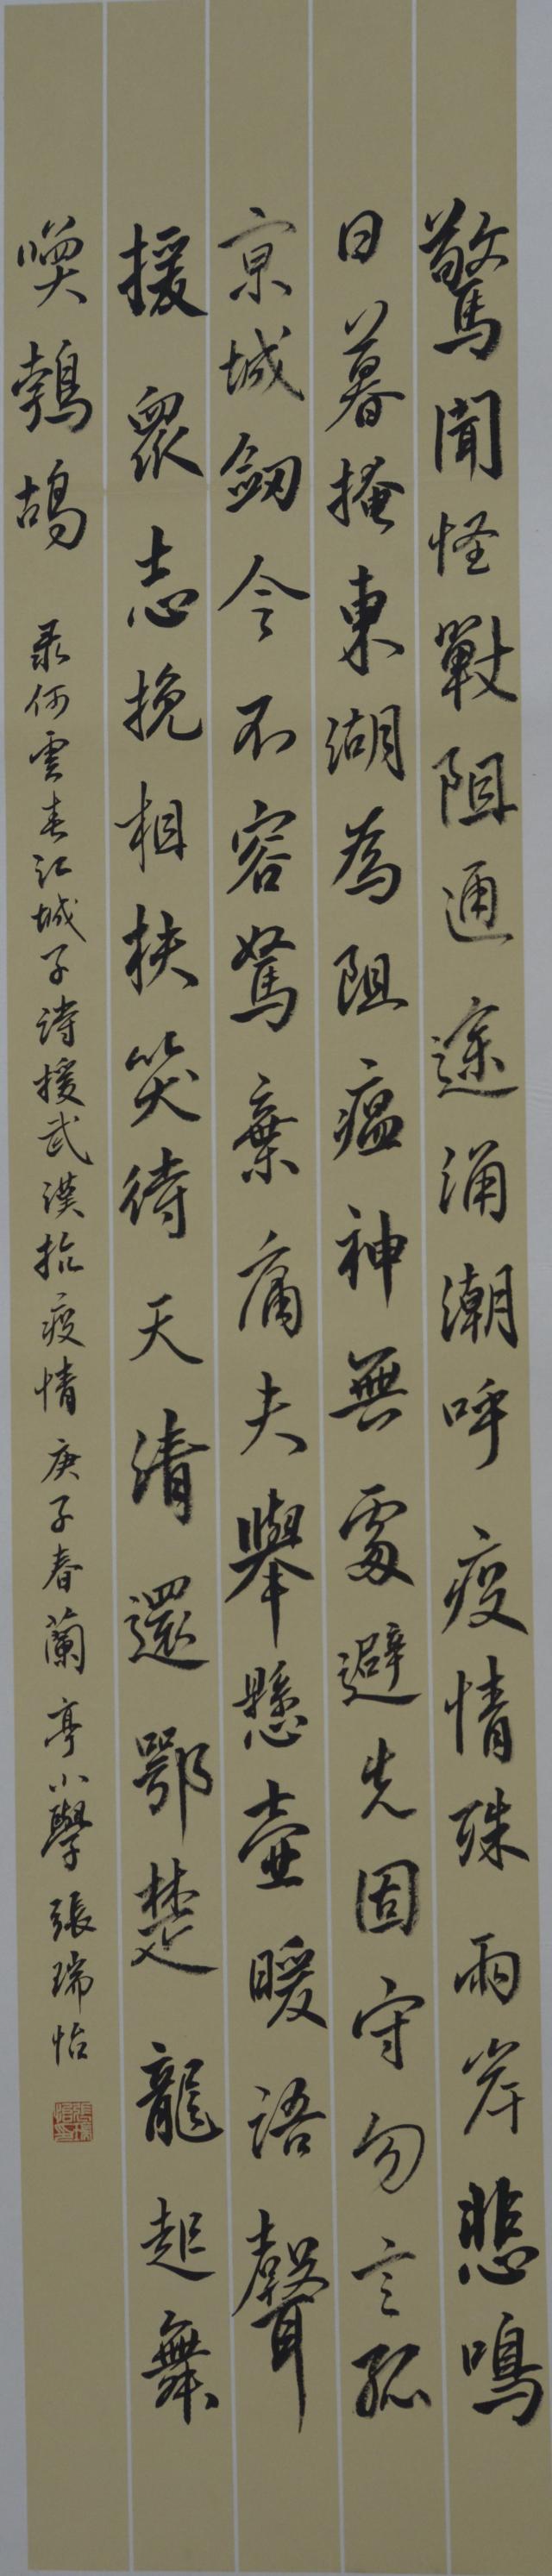 驚聞怪戰阻通途涌潮呼疫情殊兩岸悲鳴
日暮掩東湖為阻瘟神無處避先固守勿言孤
京城劒令不容駑棄庸夫舉懸壺暖語聲
援眾志挽相扶笑待天清還鄂楚龍起舞
喚鵓鴣
录何雲春江城子詩援武漢抗疫情庚子春蘭亭小學張瑞怡